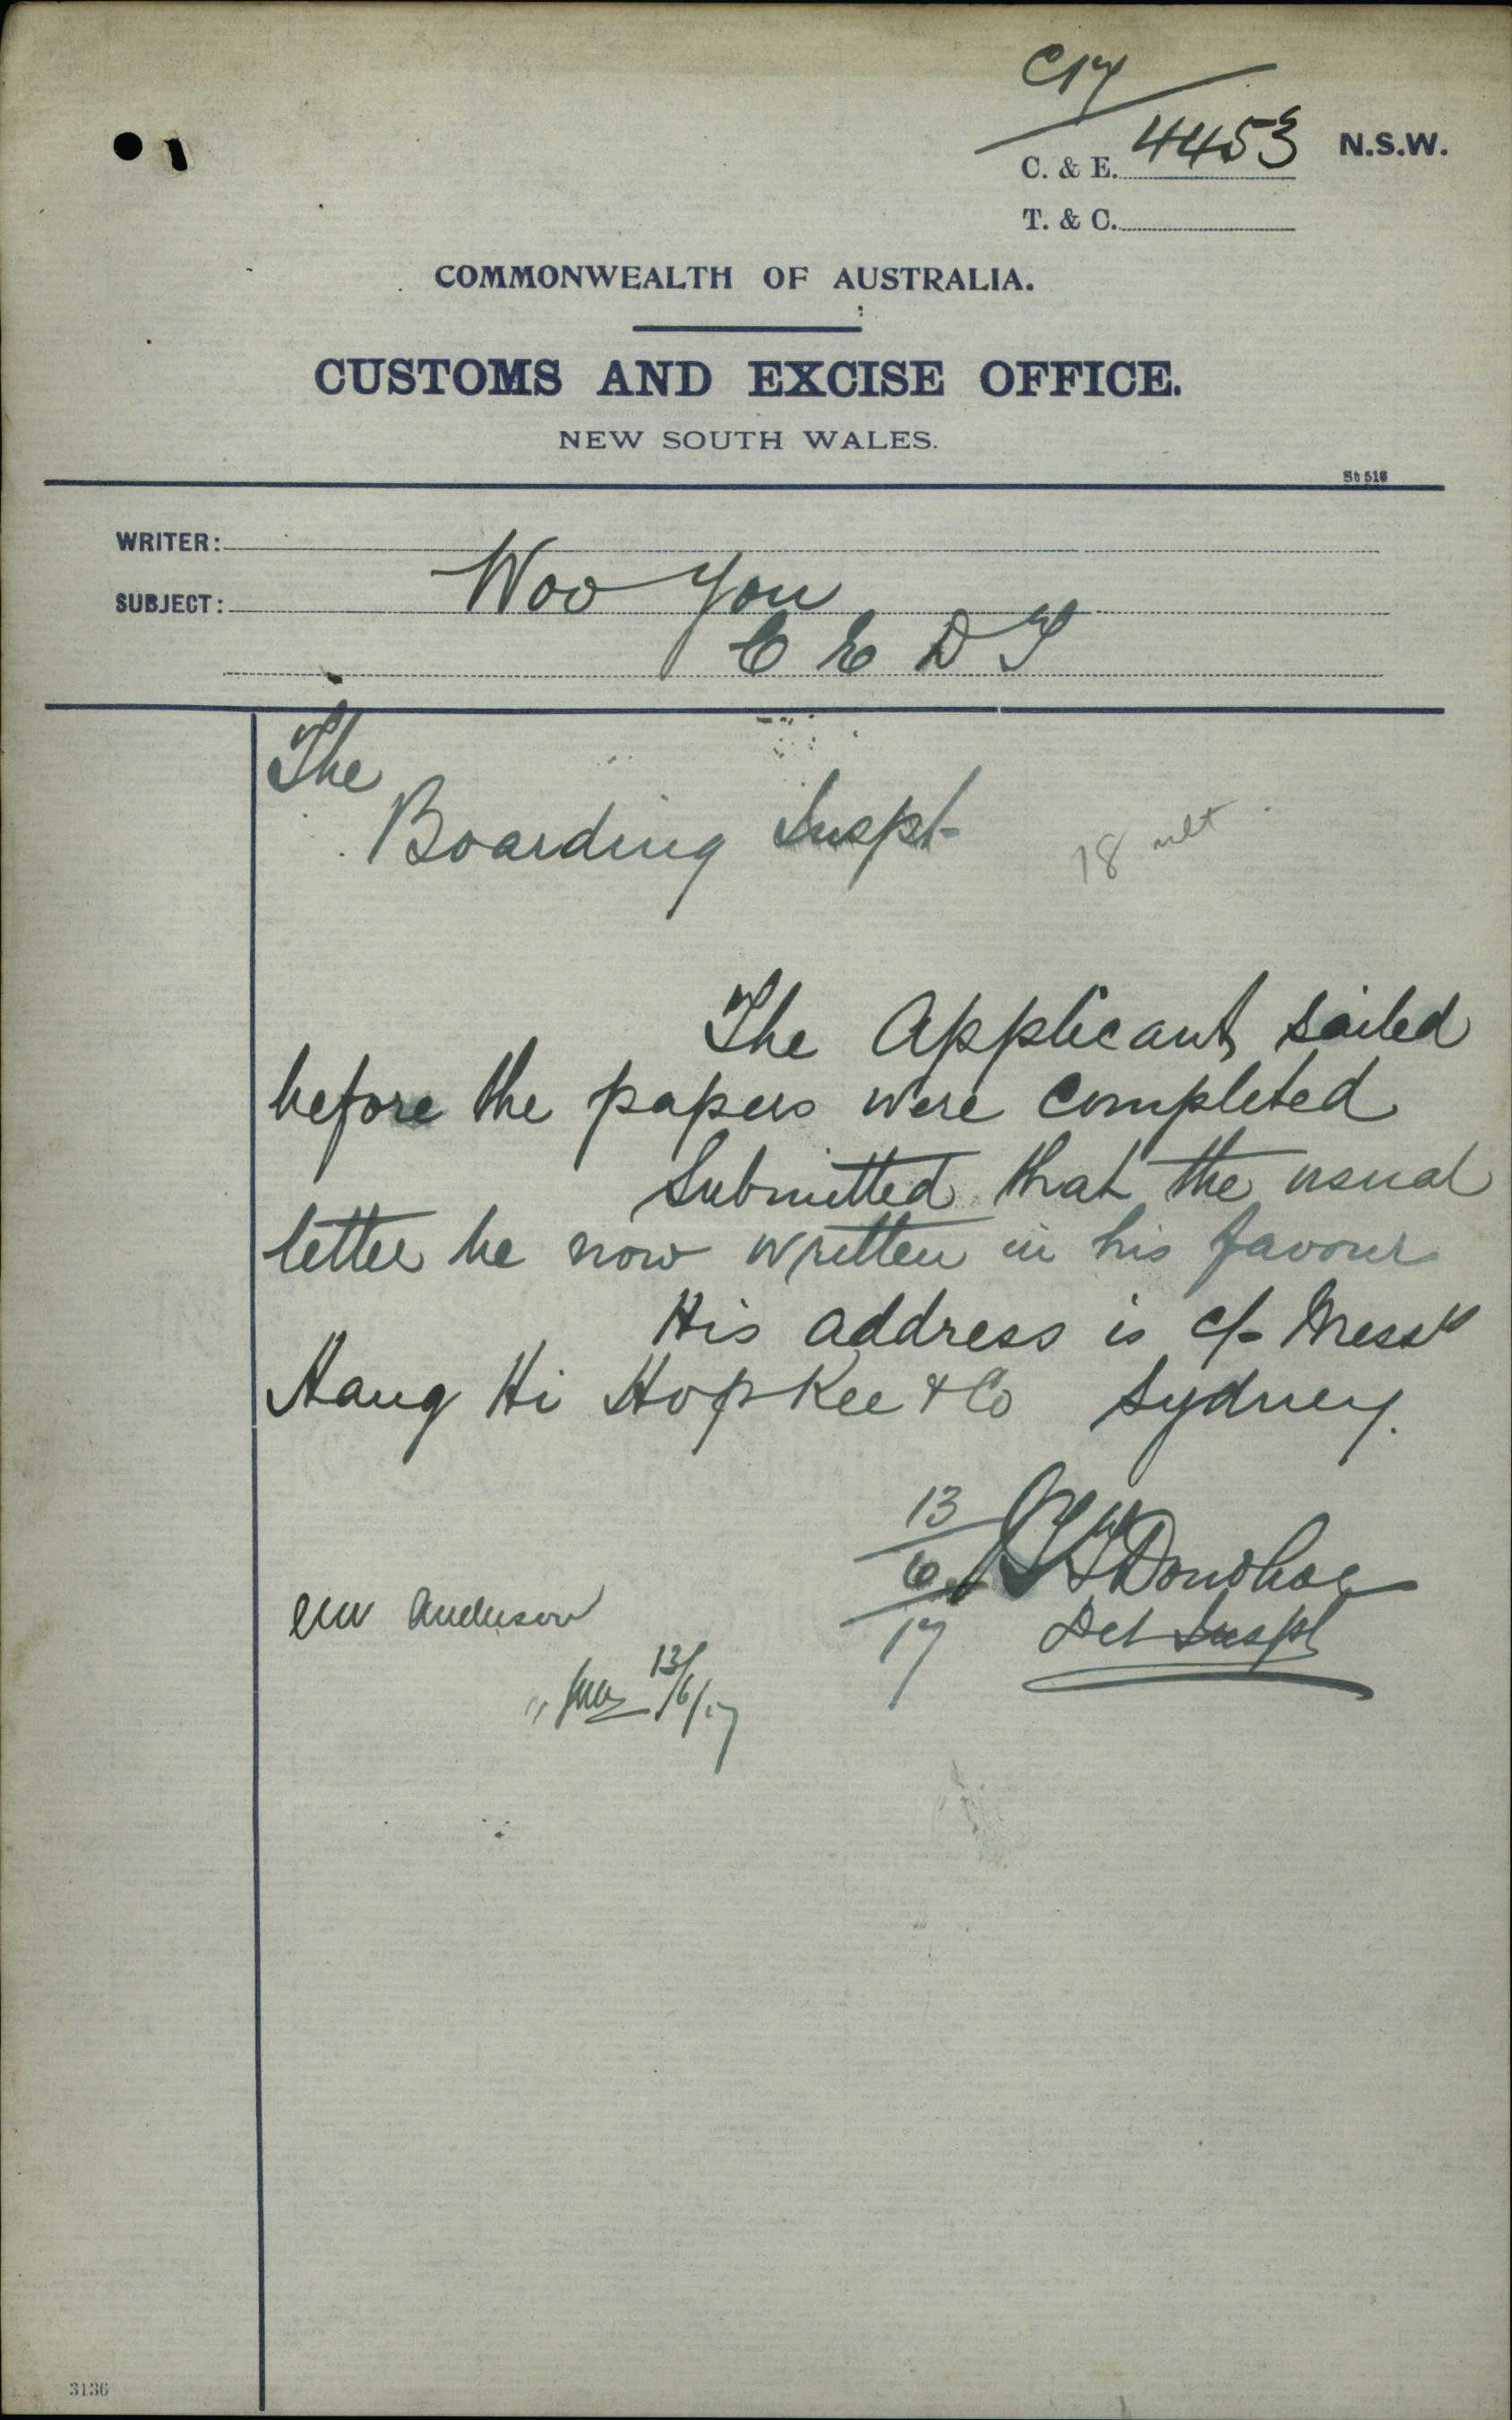 C17
C. & E. 4453 N.S.W.
T. & C.
COMMONWEALTH OF AUSTRALIA.
CUSTOMS AND EXCISE OFFICE.
NEW SOUTH WALES.
St 516
WRITER:
SUBJECT: Woo You
C E D T
The
Boarding Inspt
18
The Applicant sailed
before the papers were completed
Submitted that the usual
letter be now written in his favour
His address is c/- Messrs
Hang Hi Hop Kee & Co Sydney.
13/6/17 Donohoe
Det Inspt
Anderson
13/6/17
3136